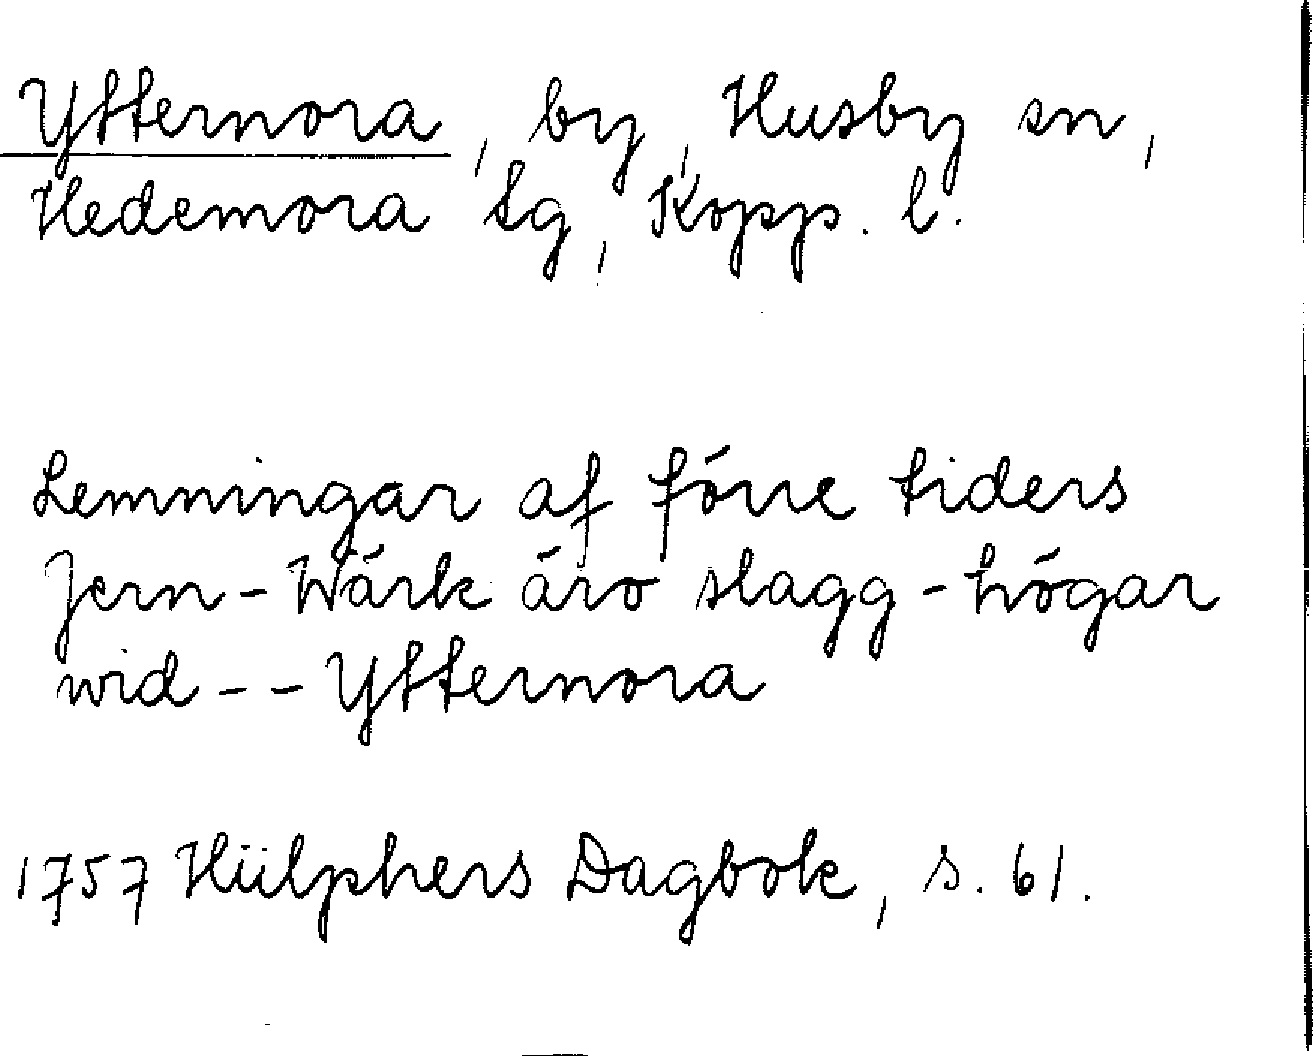 Ytternora, by, Husby sn,
Hedemora tg, Kopp. l.
Lemningar af förre tiders
Jern-Wärk äro slagg-högar
wid -- Ytternora
1757 Hülphers Dagbok, s. 61.